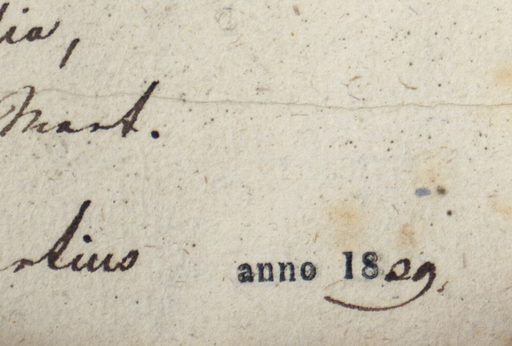 lia,
Mart.
rtius
anno 1829.